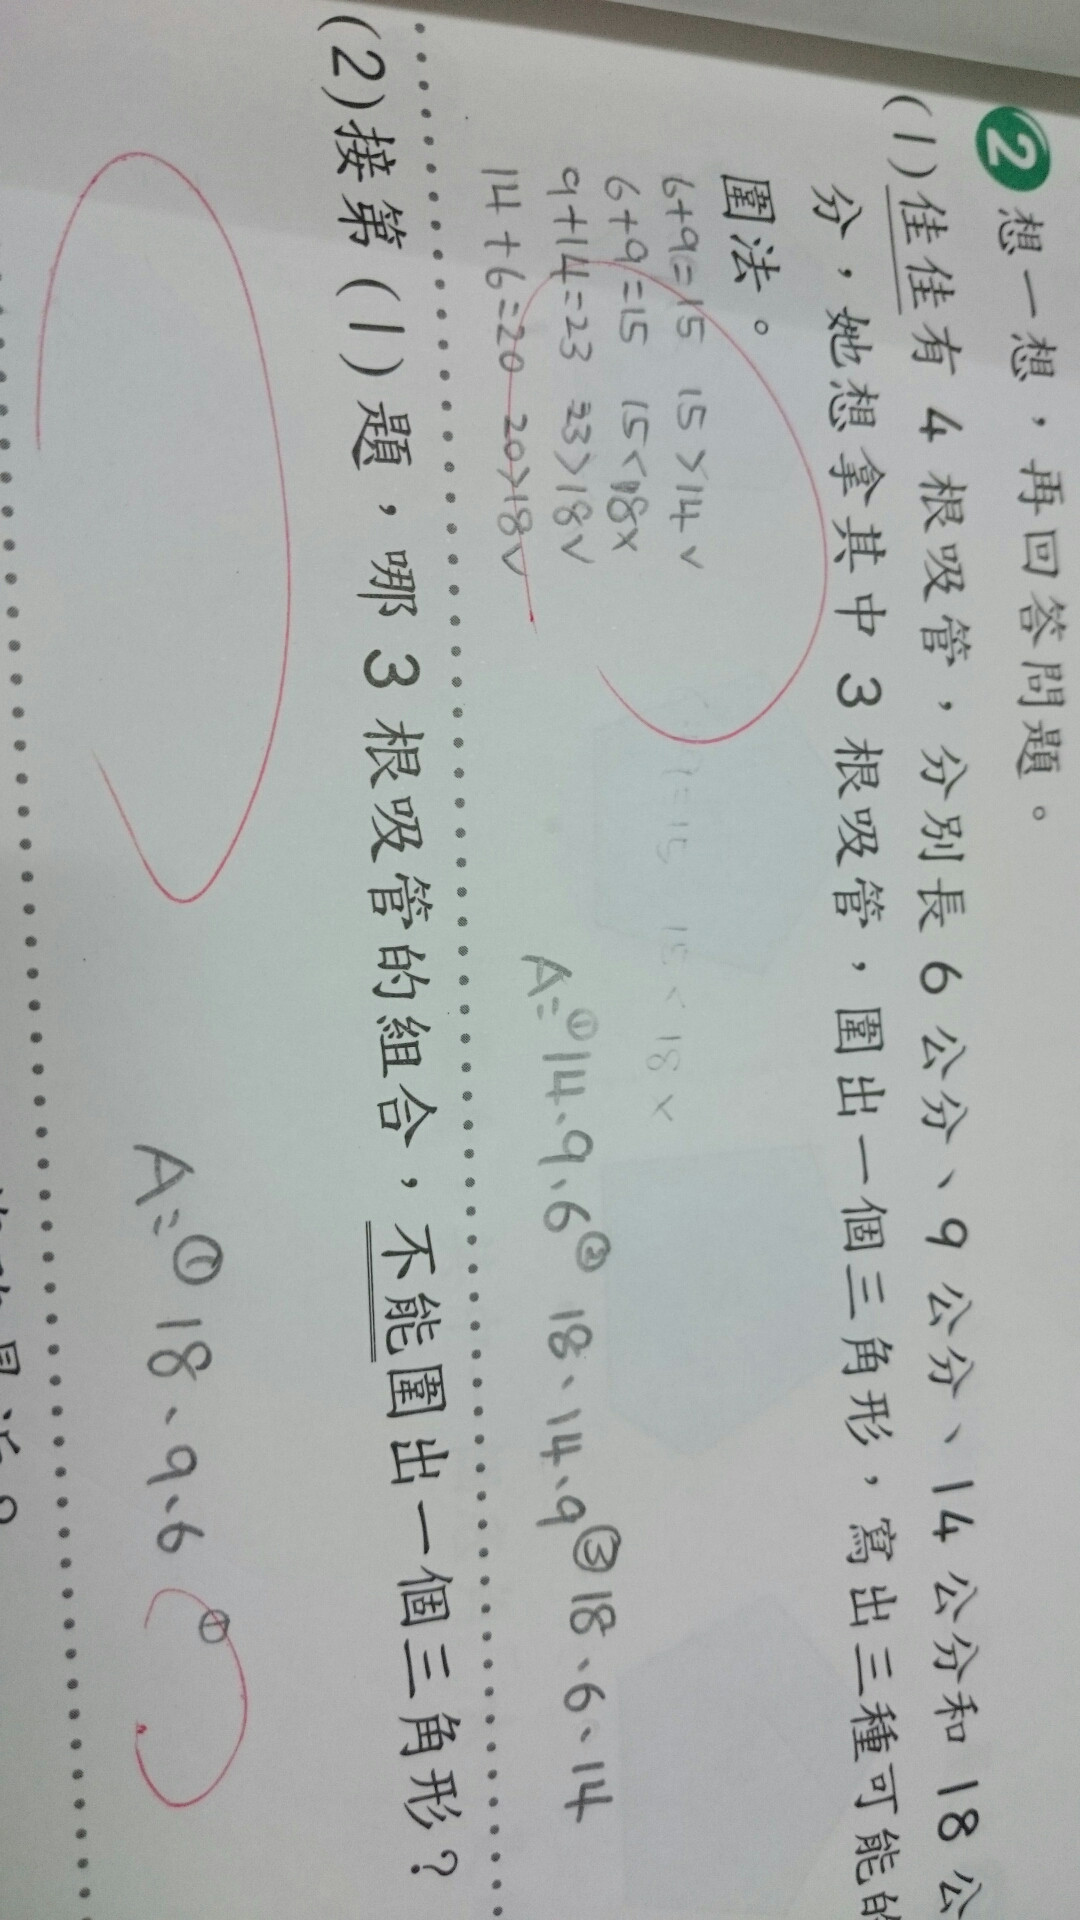 2 想一想，再回答問題。
(1)佳佳有 4 根吸管，分別長 6 公分、9 公分、14 公分和 18 公
分，她想拿其中 3 根吸管，圍出一個三角形，寫出三種可能的
圍法。
6+9=15 15>14 ✓
6+9=15 15<18×
9+14=23 23>18✓
14+6=20 20>18✓
=15 15<18×
A=①14、9、6② 18、14、9③18、6、14
(2)接第(1)題，哪 3 根吸管的組合，不能圍出一個三角形？
A=①18、9、6
①